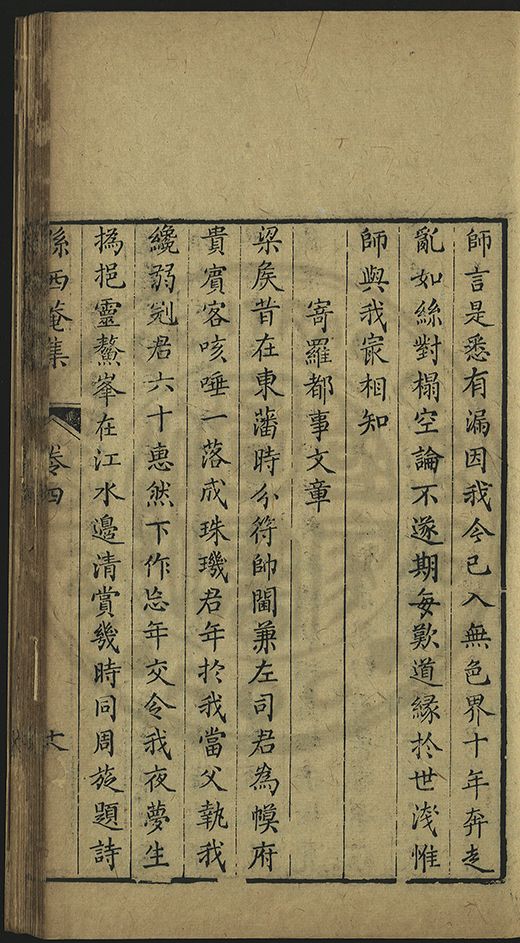 師言是悉有漏因我今已入無色界十年奔走
亂如絲對榻空論不遂期每歎道緣於世淺惟
師與我㝡相知
寄羅都事文章
梁矦昔在東藩時分符帥閫兼左司君為幙府
貴賓客咳唾一落成珠璣君年於我當父執我
纔弱冠君六十惠然下作忘年交令我夜夢生
撝挹靈鰲峯在江水邊清賞幾時同周旋題詩
孫西菴集
卷四